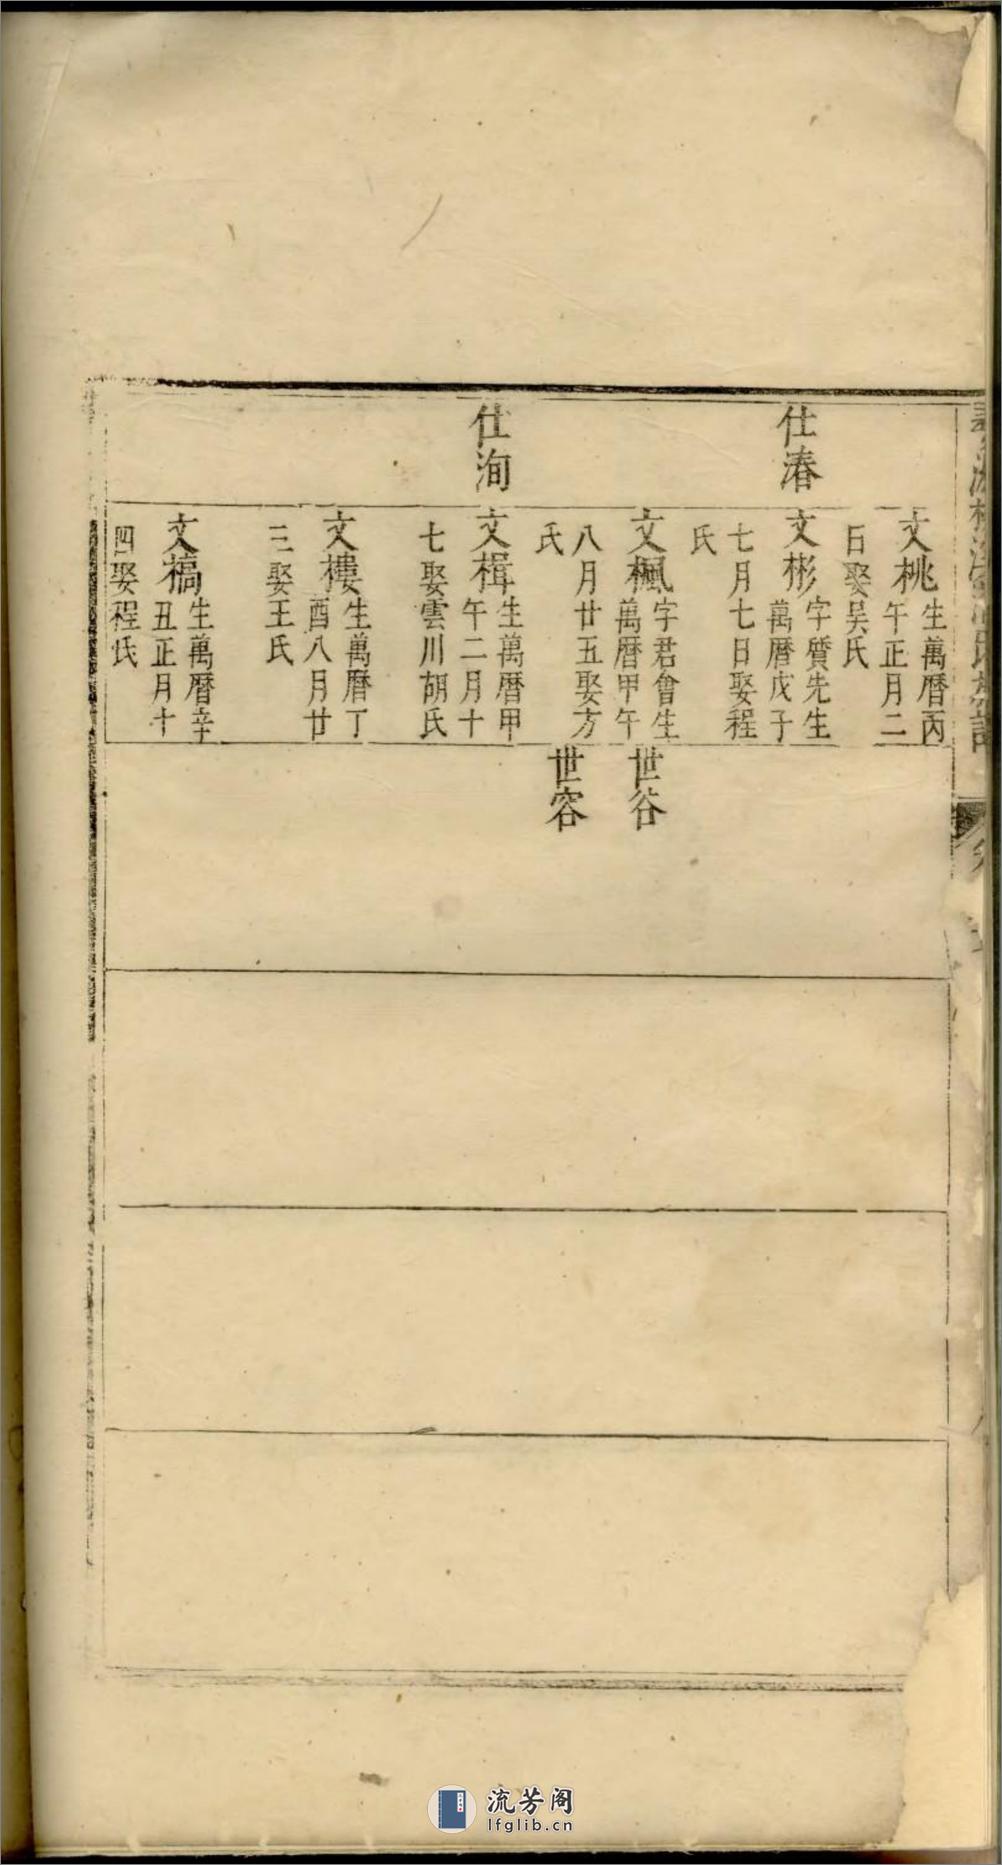 仕湷
仕洵
文桃 生萬曆丙
午正月二
日娶吴氏
文彬 字質先生
萬曆戊子
七月七日娶程
氏
文楓 字君會生
萬曆甲午
八月廿五娶方
氏
文楫 生萬曆甲
午二月十
七娶雲川胡氏
文樓 生萬曆丁
酉八月廿
三娶王氏
文槁 生萬曆辛
丑正月十
四娶程氏
世谷
世容
流芳阁
lfglib.cn